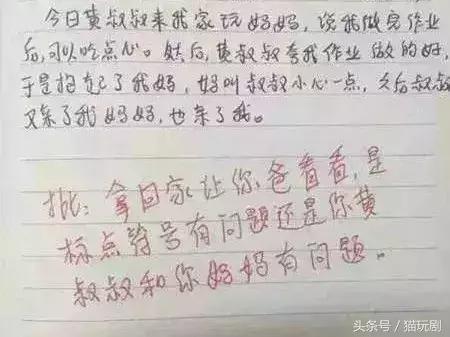 今日黄叔叔来我家玩妈妈，说我做完作业
后，可以吃点心。然后，黄叔叔夸我作业做的好，
于是抱起了我妈，妈叫叔叔小心一点，之后叔叔
又亲了我妈妈，也亲了我。
批：拿回家让你爸看看，是
标点符号有问题还是你黄
叔叔和你妈妈有问题。
头条号／猫玩剧